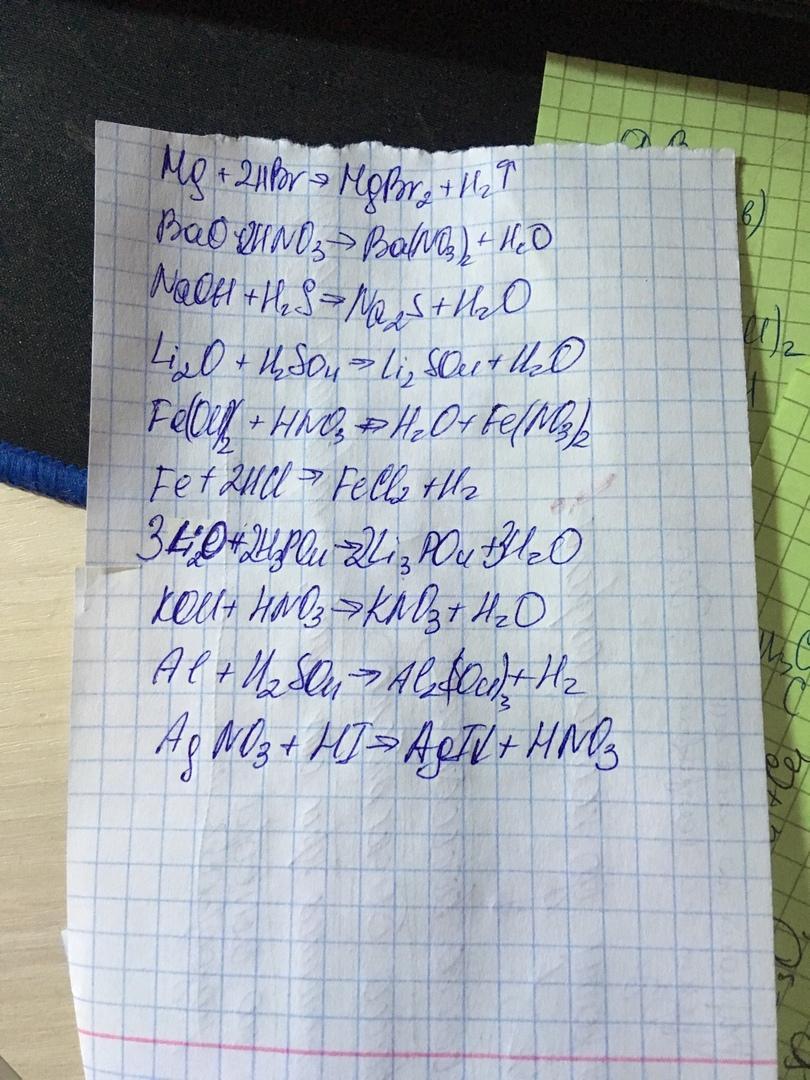 Mg + 2HBr → MgBr₂ + H₂↑
BaO + 2HNO₃ → Ba(NO₃)₂ + H₂O
NaOH + H₂S → Na₂S + H₂O
Li₂O + H₂SO₄ → Li₂SO₄ + H₂O
Fe(OH)₂ + HNO₃ → H₂O + Fe(NO₃)₂
Fe + 2HCl → FeCl₂ + H₂
3Li₂O + 2H₃PO₄ → 2Li₃PO₄ + 3H₂O
KOH + HNO₃ → KNO₃ + H₂O
Al + H₂SO₄ → Al₂(SO₄)₃ + H₂
AgNO₃ + HI → AgI↓ + HNO₃
в)